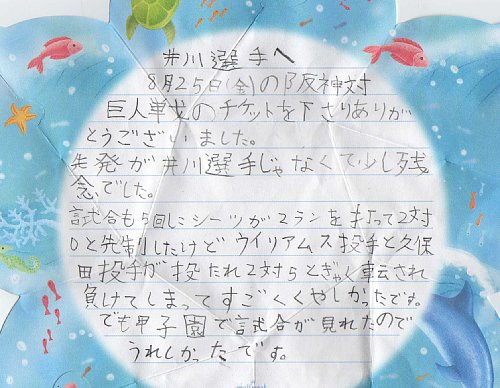 井川選手へ
8月25日(金)の阪神対
巨人戦のチケットを下さりありが
とうございました。
先発が井川選手じゃなくて少し残
念でした。
試合も5回しにシーツが2ランを打って2対
0と先制したけどウイリアムス投手と久保
田投手が投たれ2対5とぎゃく転され
負けてしまってすごくくやしかったです。
でも甲子園で試合が見れたので
うれしかったです。